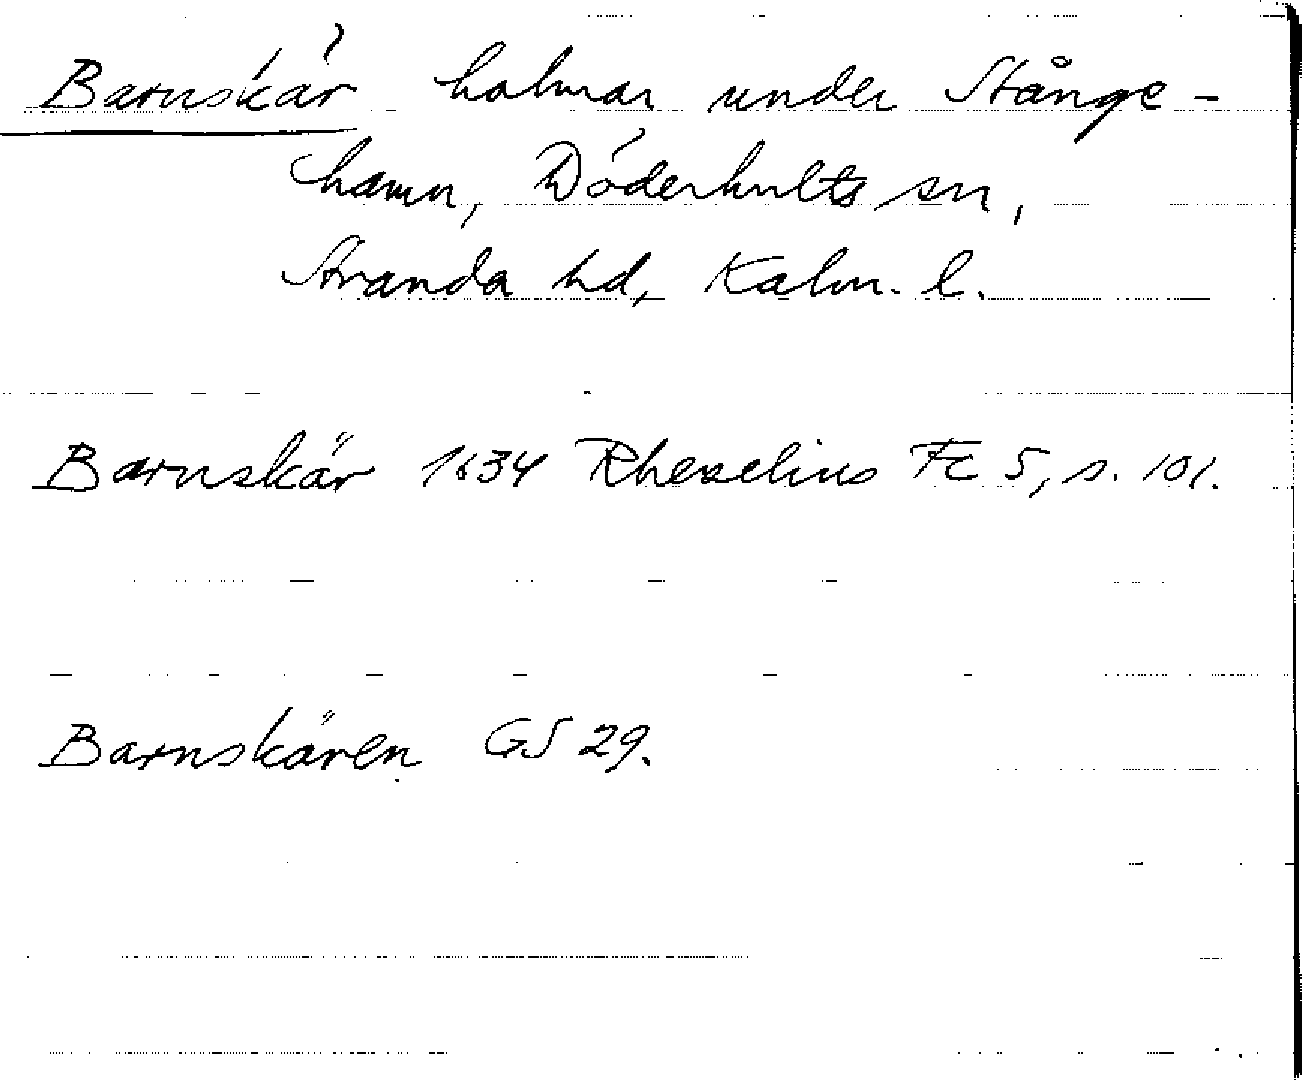 Barnskär holmar under Stånge-
hamn, Döderhults sn,
Stranda hd, Kalm. l.
Barnskär 1634 Rhezelius Fc 5, s. 101.
Barnskären GS 29.